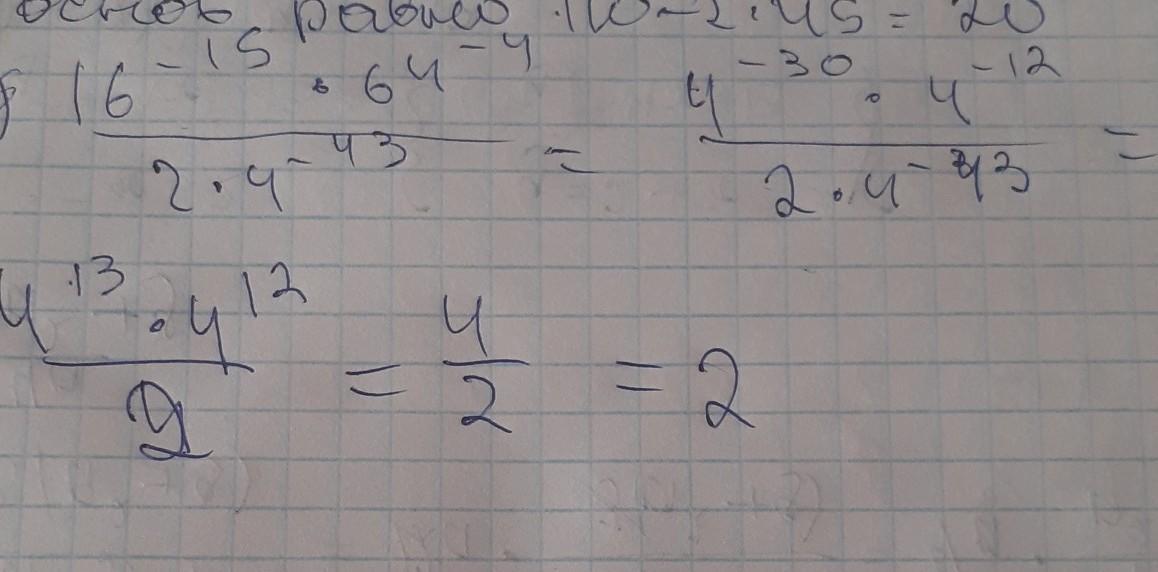 основ равно 110-2·45=20
(16^-15 · 64^-4)/(2·4^-43) = (4^-30 · 4^-12)/(2·4^-43) =
(4^13 · 4^12)/2 = 4/2 = 2